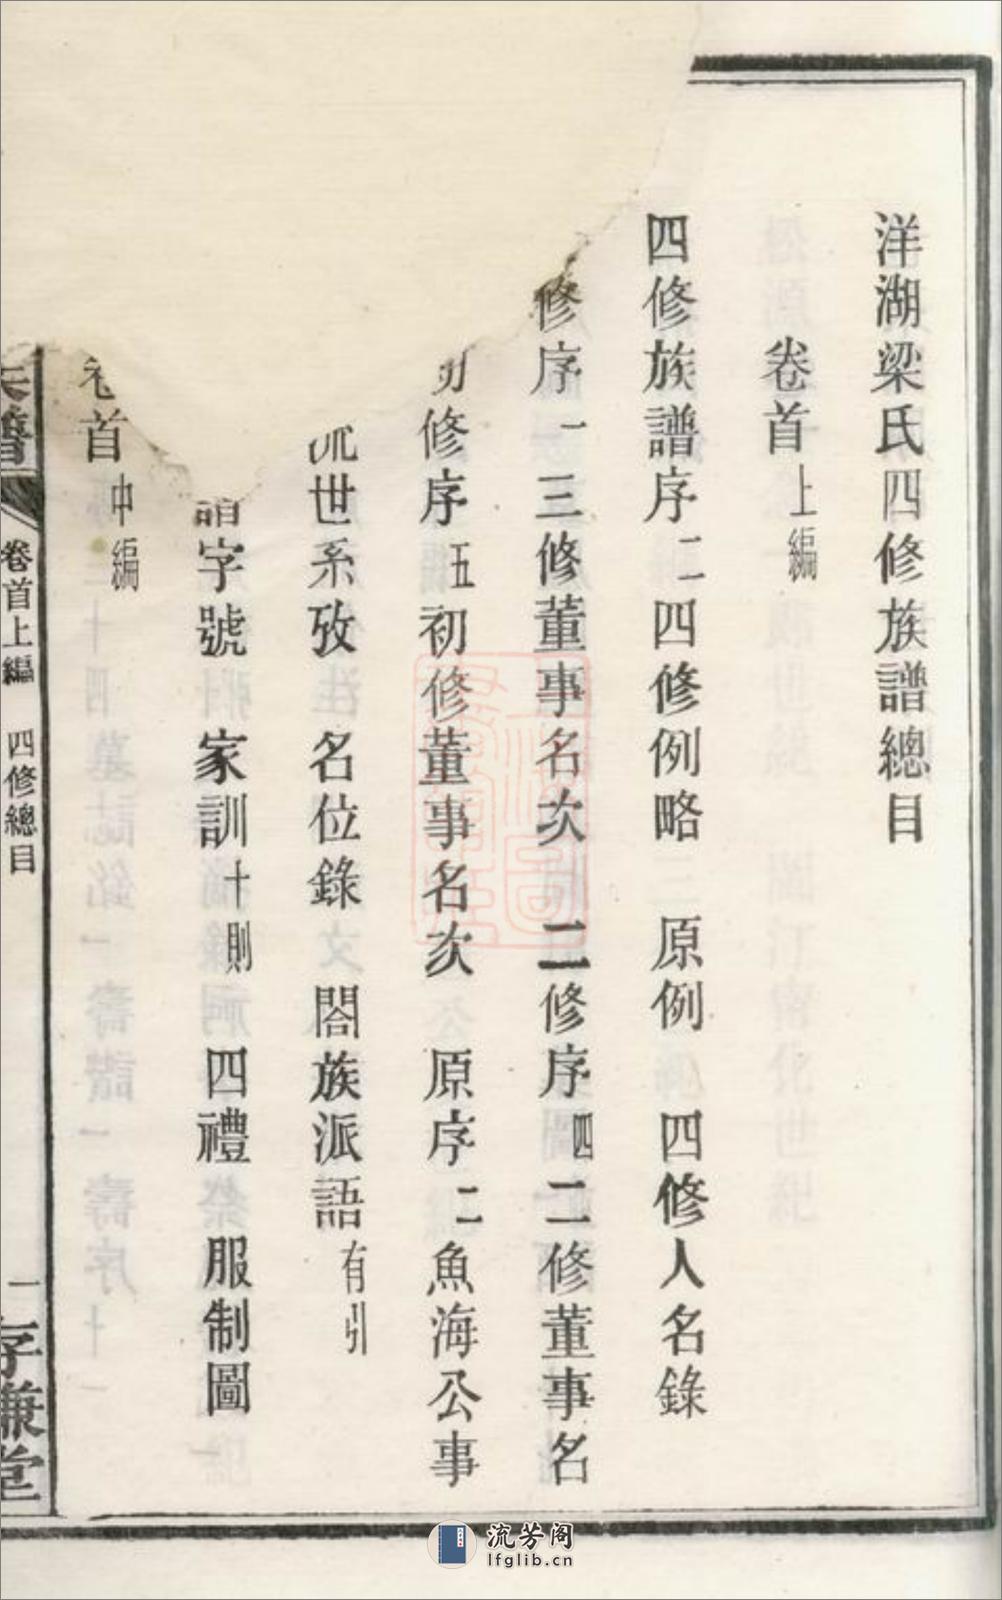 洋湖梁氏四修族譜總目
卷首上編
四修族譜序二四修例略 原例 四修人名錄
修序一三修董事名次 二修序四二修董事名
初修序五初修董事名次 原序二魚海公事
流世系攷 名位錄 閤族派語有引
譜字號 家訓十則 四禮 服制圖
卷首中編
氏譜 卷首上編 四修總目 一 存謙堂
流芳阁
lfglib.cn